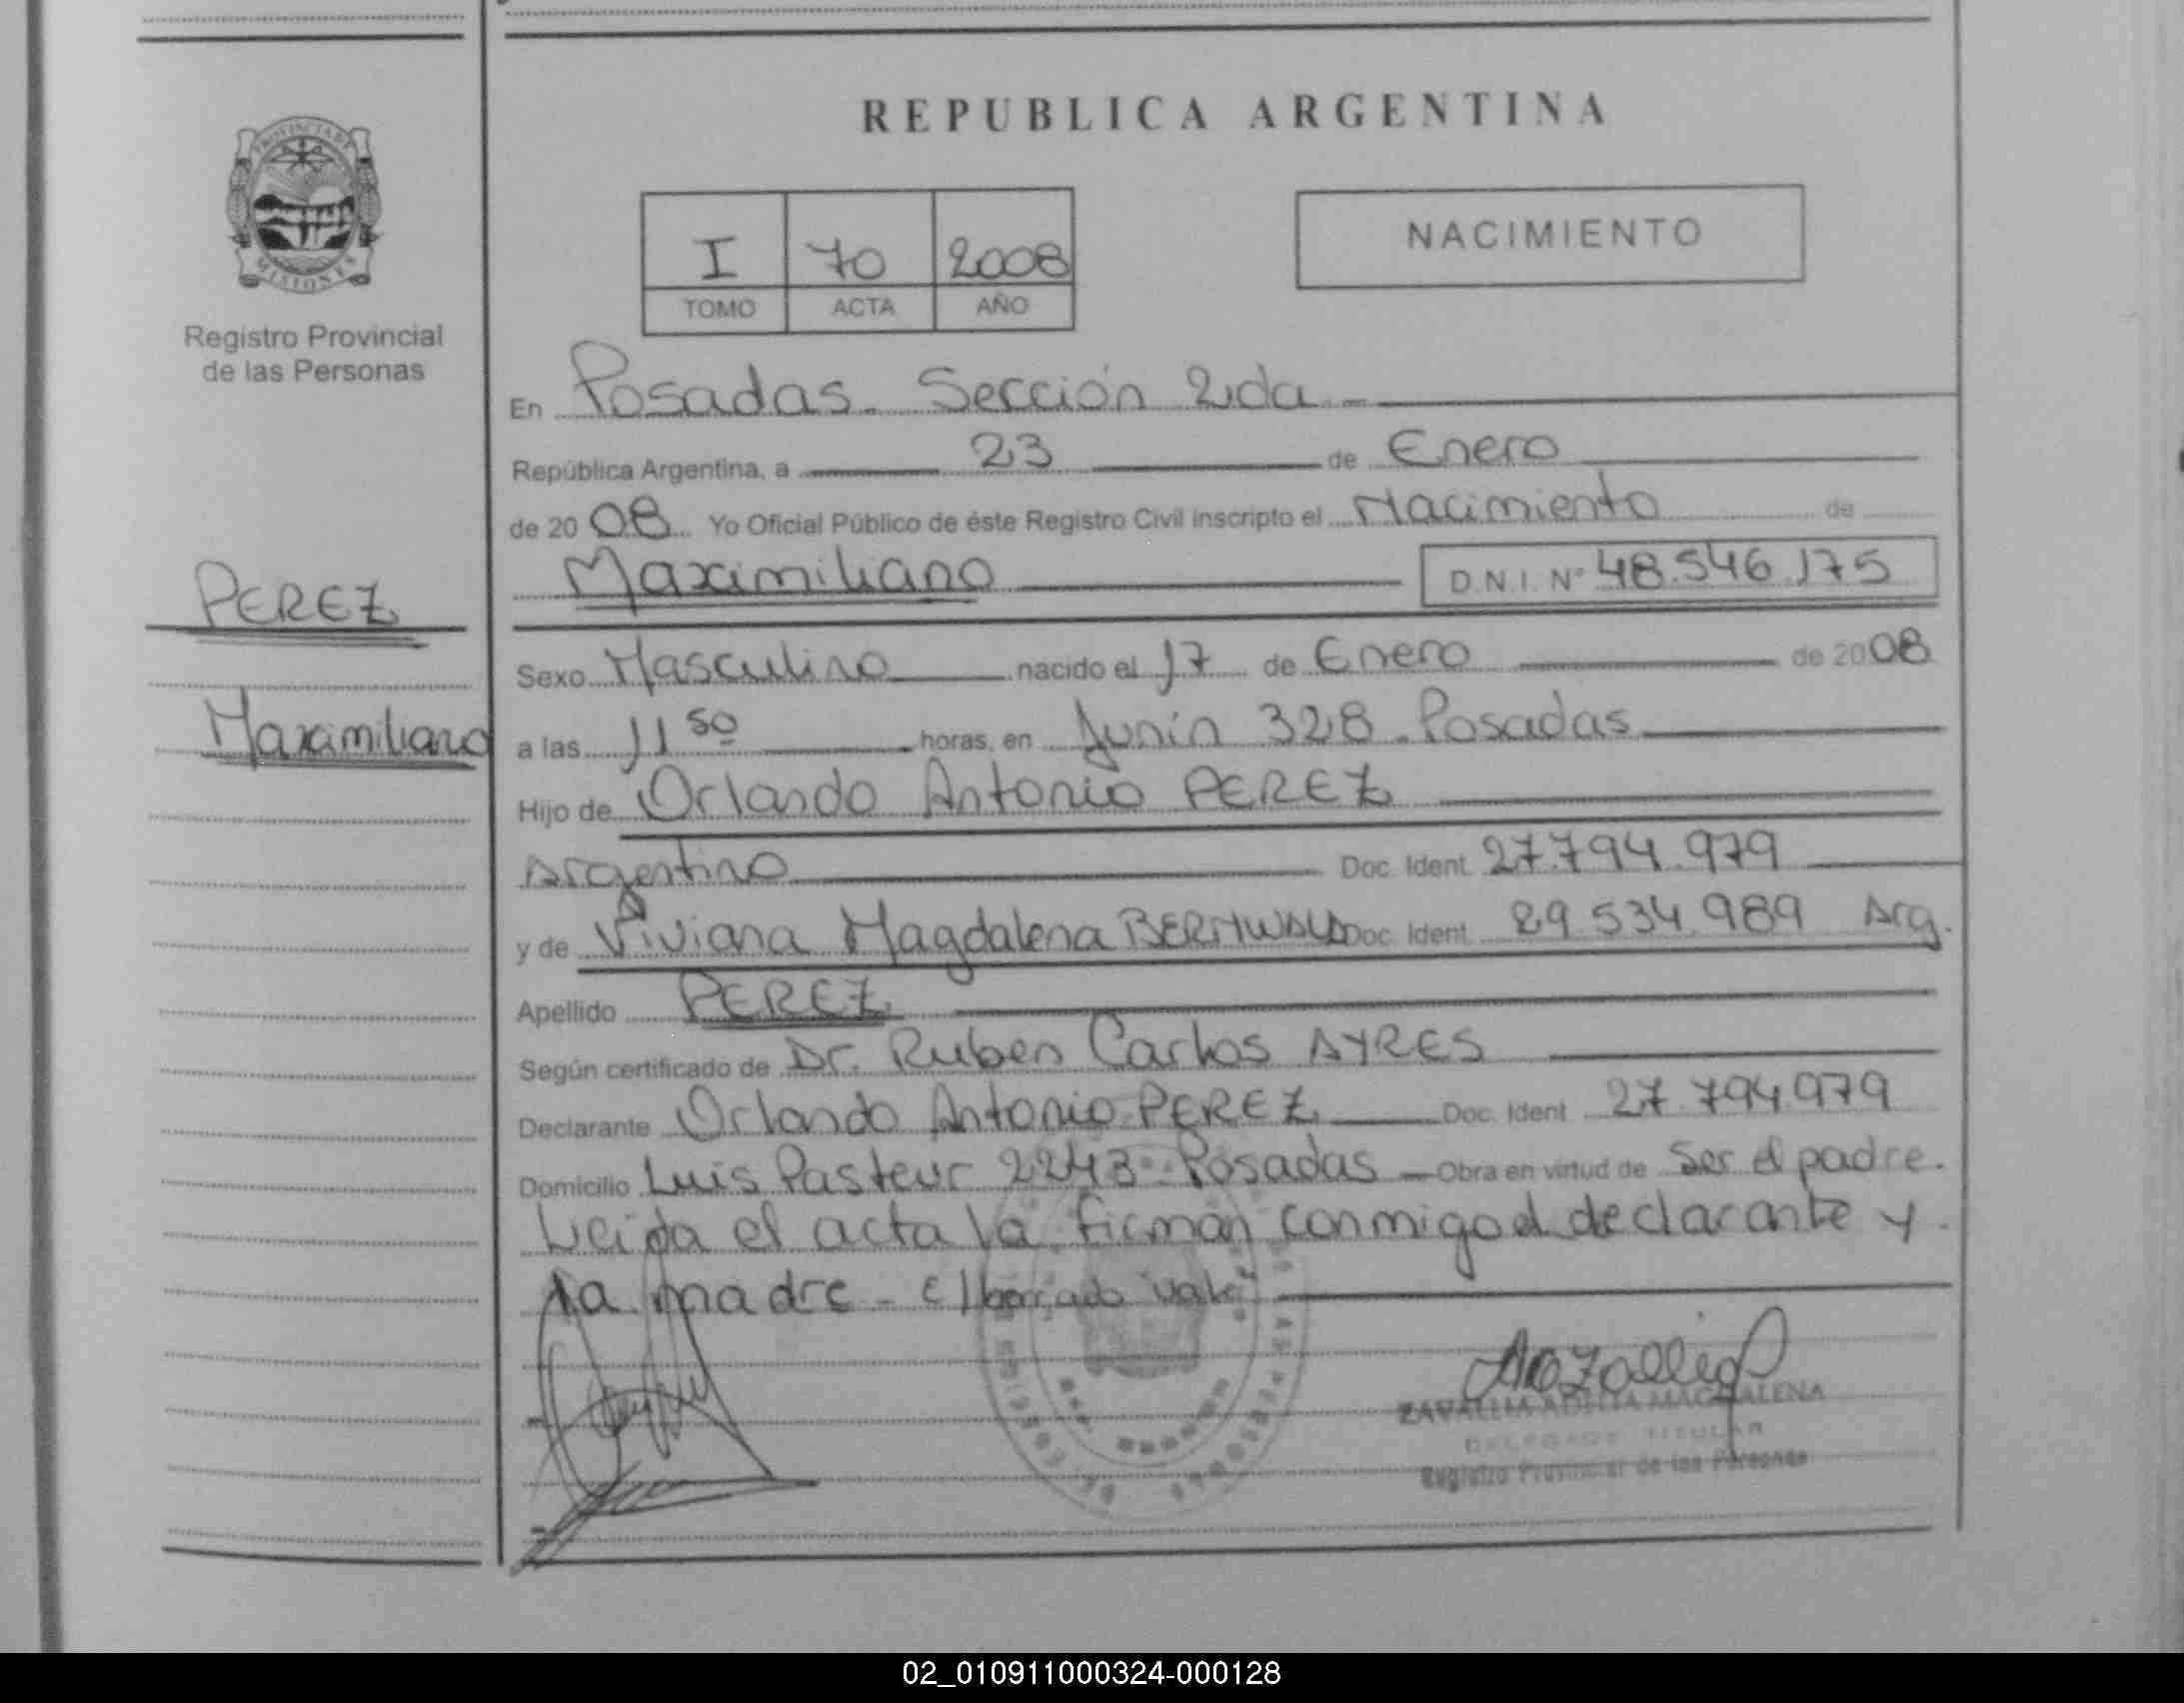 REPUBLICA ARGENTINA
PROVINCIA DE
MISIONES
Registro Provincial
de las Personas
I 70 2008
TOMO ACTA AÑO
NACIMIENTO
En Posadas. Sección 2da.-
República Argentina, a 23 de Enero
de 2008 Yo Oficial Público de éste Registro Civil inscripto el Nacimiento de
Maximiliano D.N.I. Nº 48.546.175
PEREZ
Maximiliano
Sexo Masculino nacido el 17 de Enero de 2008
a las 11 50 horas, en Junín 328. Posadas
Hijo de Orlando Antonio PEREZ
Argentino Doc. Ident. 27.794.979
y de Viviana Magdalena Doc. Ident. 29.534.989 Arg.
Apellido PEREZ
Según certificado de Dr. Ruben Carlos AYRES
Declarante Orlando Antonio PEREZ Doc. Ident. 27.794.979
Domicilio Luis Pasteur 2243. Posadas Obra en virtud de Ser el padre.
Leida el acta la firman conmigo el declarante y
la madre - c/ borrado vale
MAGDALENA
TITULAR
Registro Provincial de las Personas
02_010911000324-000128